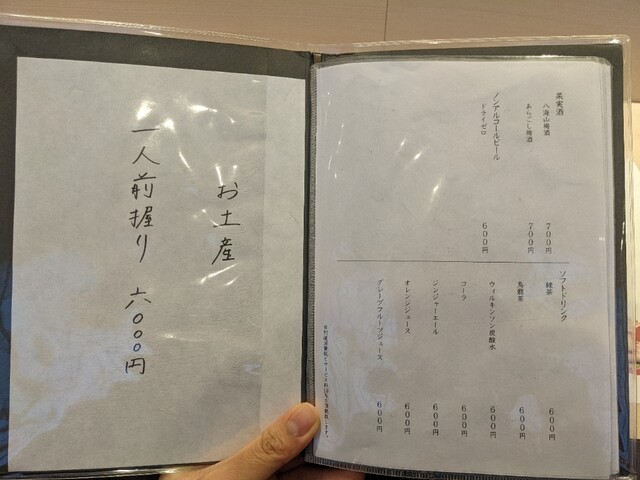 お土産
一人前握り 六〇〇〇円
果実酒
八海山梅酒 700円
あらごし梅酒 700円
ノンアルコールビール
ドライゼロ 600円
ソフトドリンク
緑茶 600円
烏龍茶 600円
ウィルキンソン炭酸水 600円
コーラ 600円
ジンジャーエール 600円
オレンジジュース 600円
グレープフルーツジュース 600円